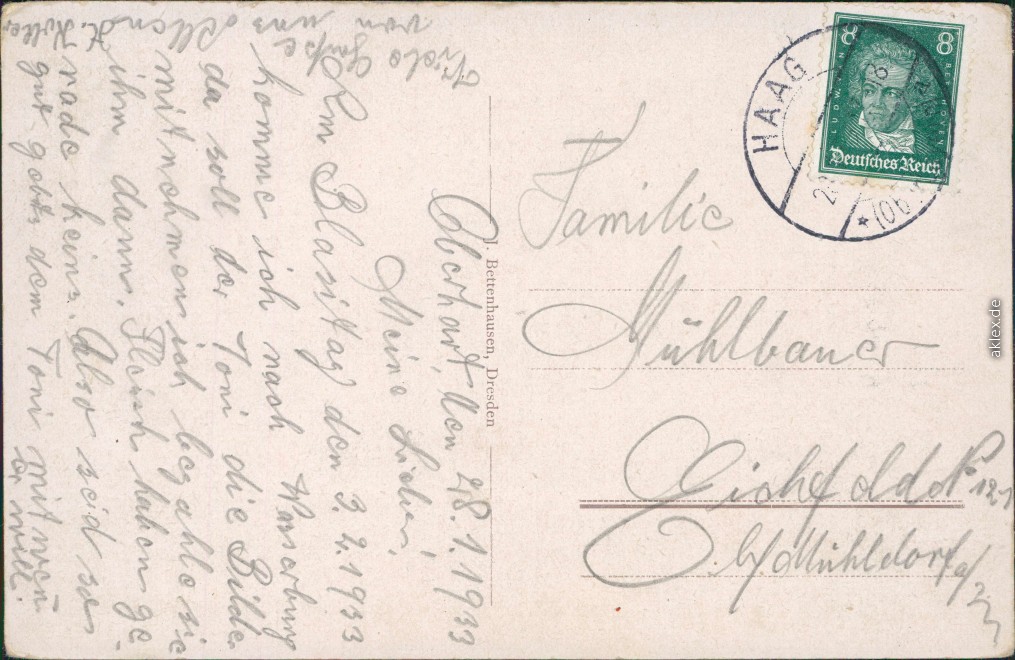 Oberhart, den 28.1.1933
Meine Lieben!
Am Blasitag den 3.2.1933
komme ich nach Wasserburg
da soll der Toni die Bilder
mitnehmen ich bezahle sie
ihm dann. Fleisch haben ge
rade keins. Also seid so
gut gebts dem Toni mit wen
er will.
Viele Grüße
von uns allen
J. Bettenhausen, Dresden
HAAG
(Ob
8
8
LUDWIG VAN
BEETHOVEN
Deutsches Reich
Familie
Mühlbauer
Eichfeld No 121
b/Mühldorf a/
aklex.de